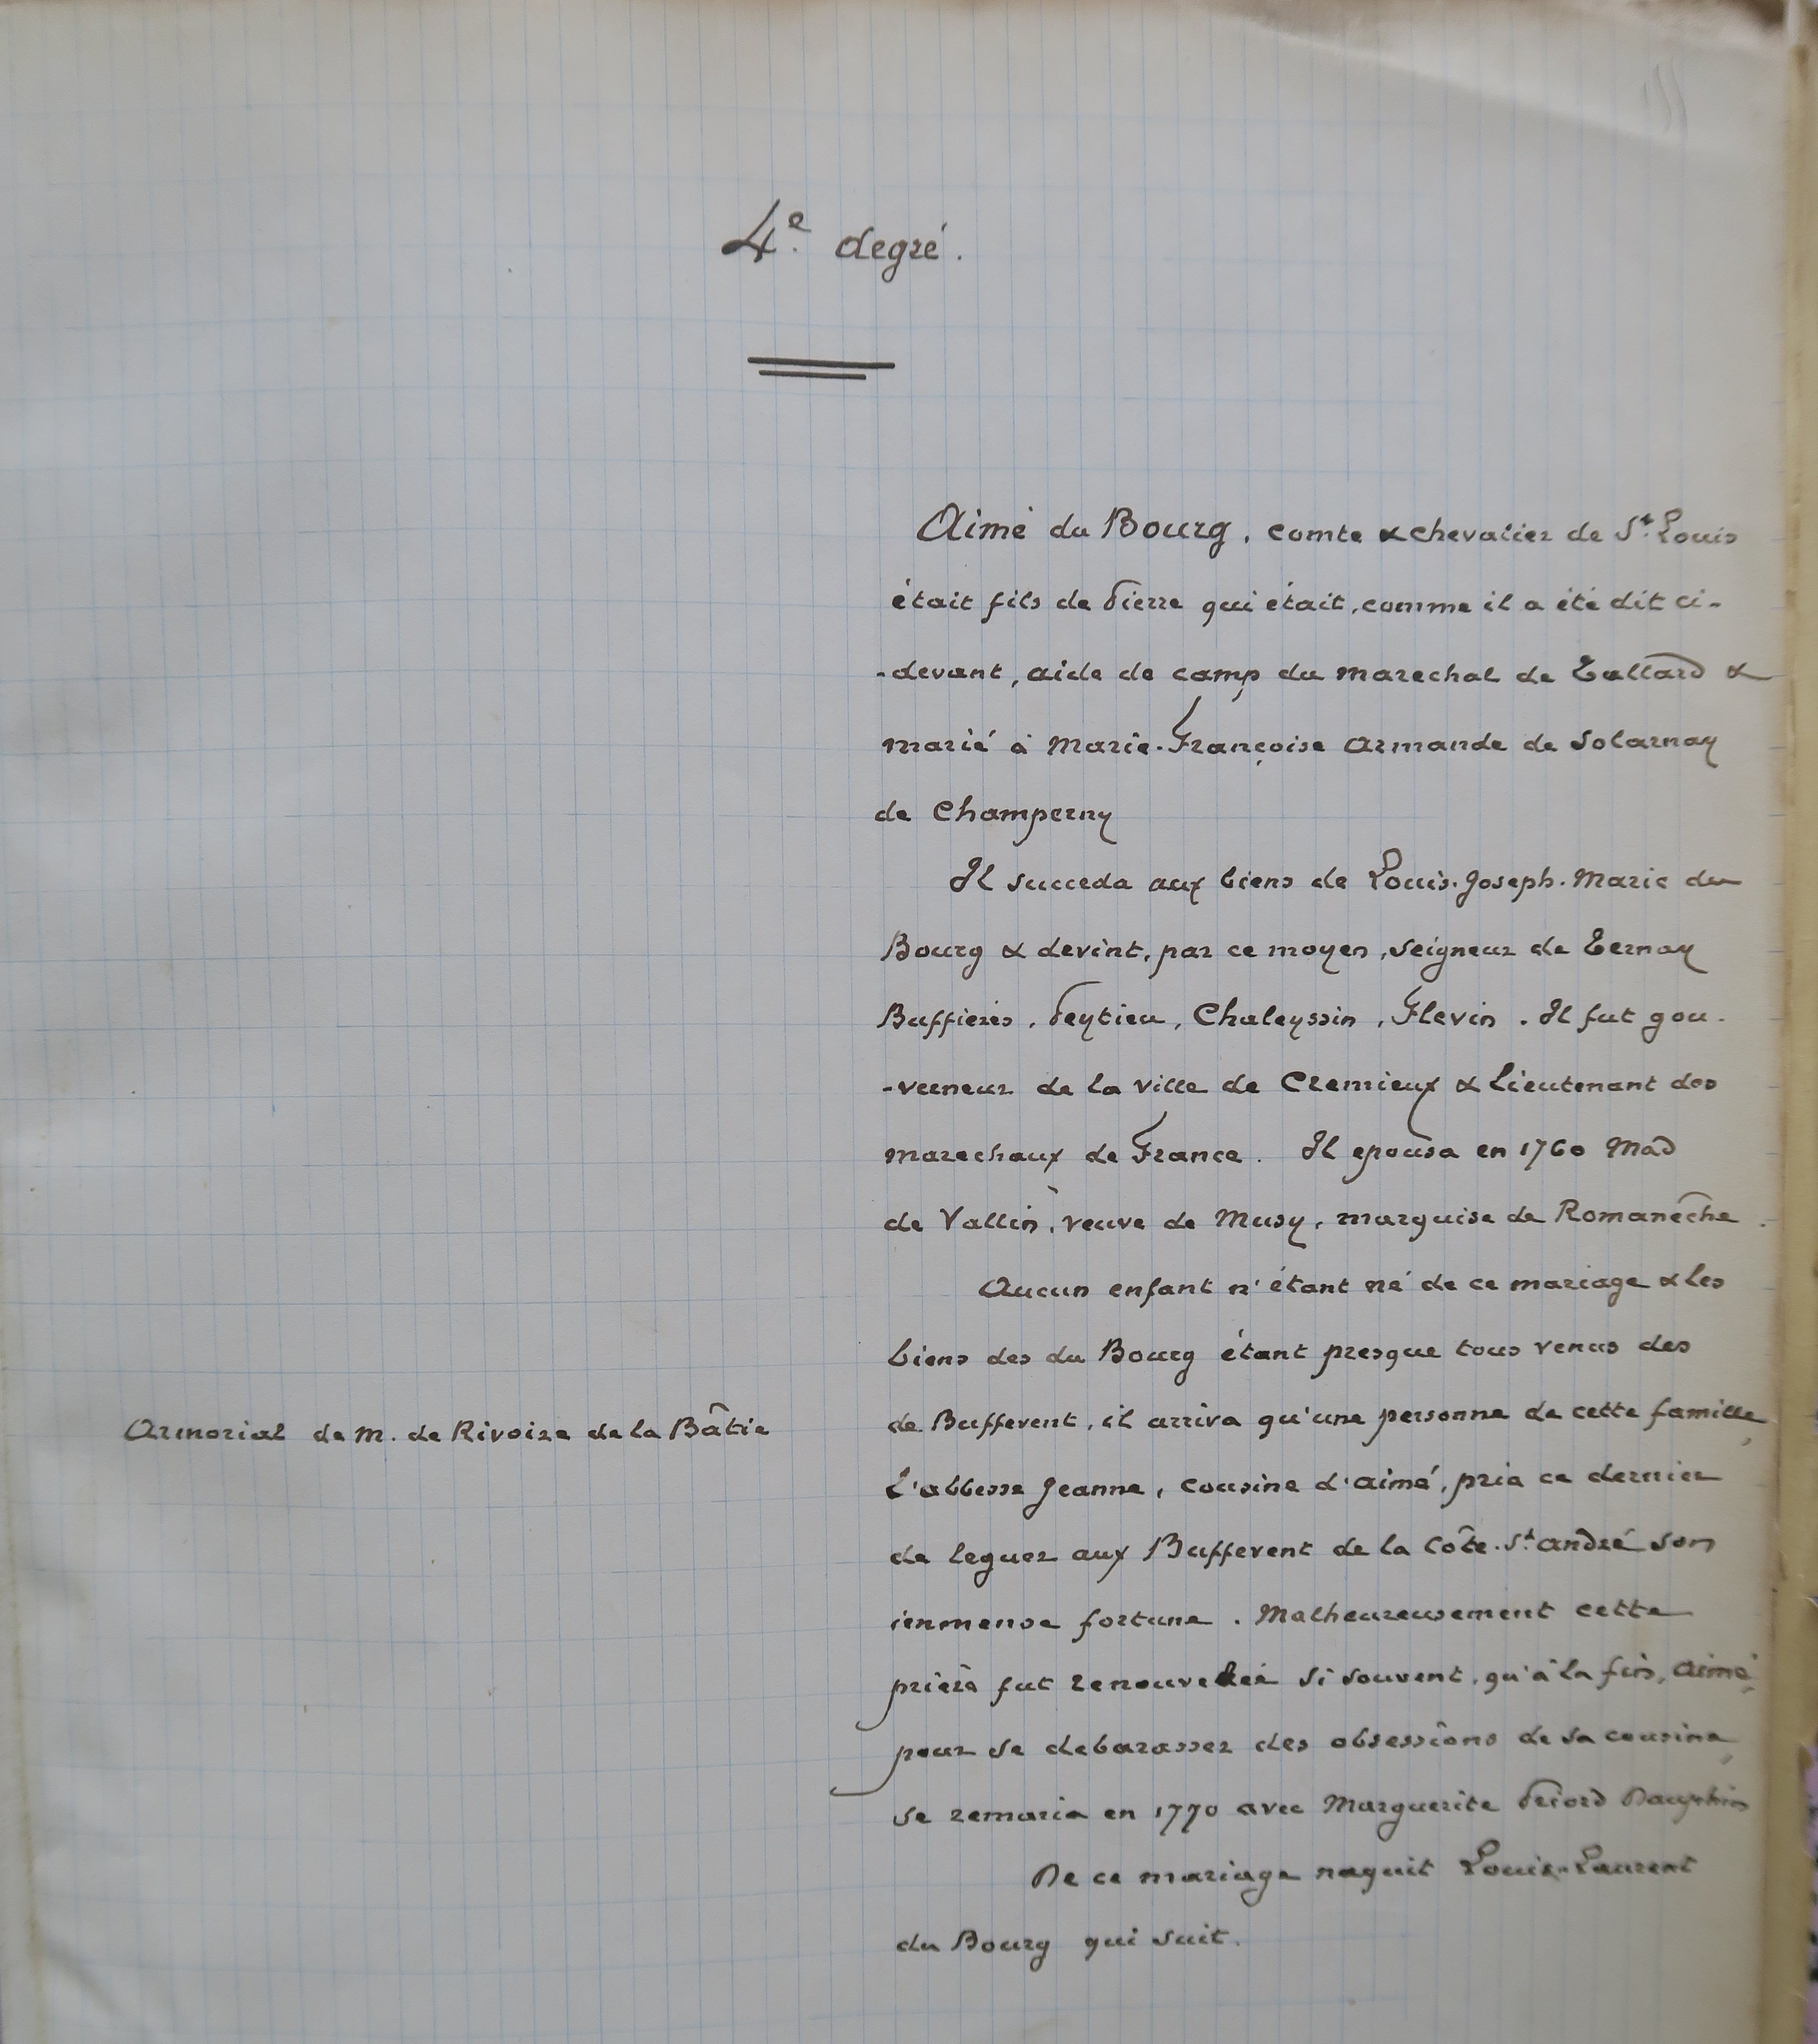 4e. degré.
Aimé du Bourg, comte & chevalier de St. Louis
était fils de Pierre qui était, comme il a été dit ci-
-devant, aide de camp du marechal de Tallard &
marié à Marie-Françoise Armande de Solarnay
de Champerny
Il succeda aux biens de Louis-Joseph-Marie du
Bourg & devint, par ce moyen, Seigneur de Ternay
Buffières, Peytieu, Chaleyssin, Flevin. Il fut gou-
-verneur de la ville de Cremieux & Lieutenant des
marechaux de France. Il epousa en 1760 Mad
de Vallin, veuve de Musy, marquise de Romanêche.
Aucun enfant n'étant né de ce mariage & les
biens des du Bourg étant presque tous venus des
Armorial de M. de Rivoire de la Bâtie
de Buffevent, il arriva qu'une personne de cette famille,
l'abbesse Jeanne, cousine d'aimé, pria ce dernier
de leguer aux Buffevent de la Côte-St. André son
immense fortune. Malheureusement cette
prière fut renouvelée si souvent, qu'à la fin, Aimé,
pour se debarasser des obsessions de sa cousine,
se remaria en 1770 avec Marguerite Dauphin
De ce mariage naquit Louis-Laurent
du Bourg qui suit.